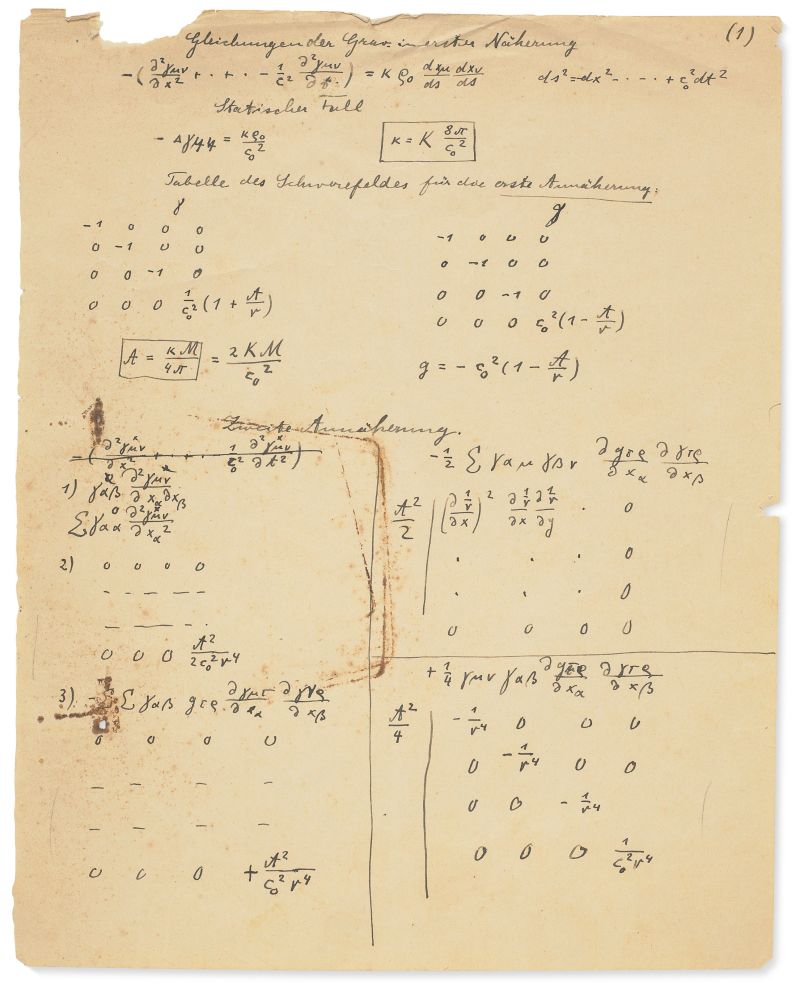 (1)
Gleichungen der Grav. in erster Näherung
−(∂²γμν/∂x² + · + · − 1/c² ∂²γμν/∂t²) = κ ρ₀ dxμ/ds dxν/ds    ds² = −dx² − · − · + c₀² dt²
Statischer Fall
− Δγ₄₄ = κρ₀/c₀²    κ = K 8π/c₀²
Tabelle des Schwerefeldes für die erste Annäherung.
γ    g
−1 0 0 0    −1 0 0 0
0 −1 0 0    0 −1 0 0
0 0 −1 0    0 0 −1 0
0 0 0 1/c₀² (1 + A/r)    0 0 0 c₀² (1 − A/r)
A = κM/4π = 2KM/c₀²    g = − c₀² (1 − A/r)
Zweite Annäherung.
−(∂²γμν^x/∂x² + · + · 1/c₀² ∂²γμν^x/∂t²)
1) γαβ ∂²γμν/∂xα∂xβ
Σ γαα ∂²γμν^x/∂xα²
2) 0 0 0 0
– – – –
– – – –
0 0 0 A²/2c₀²r⁴
3) Σ γαβ gτρ ∂γμτ/∂xα ∂γνρ/∂xβ
0 0 0 0
– – – –
– – – –
0 0 0 + A²/c₀²r⁴
−1/2 Σ γαμ γβν ∂gτρ/∂xα ∂γτρ/∂xβ
A²/2 | (∂(1/r)/∂x)² ∂(1/r)/∂x ∂(1/r)/∂y · 0
· · 0
· · 0
0 0 0 0
+ 1/4 γμν γαβ ∂gτρ/∂xα ∂γτρ/∂xβ
A²/4 | −1/r⁴ 0 0 0
0 −1/r⁴ 0 0
0 0 −1/r⁴
0 0 0 1/c₀²r⁴